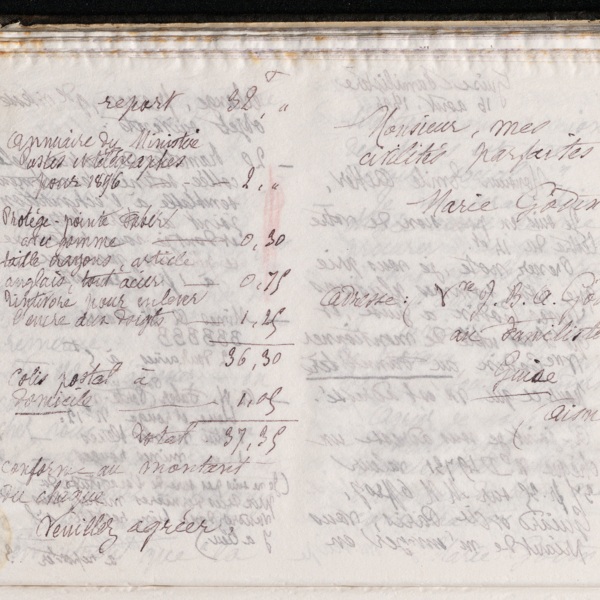 report 32, "
Annuaire du Ministère
postes et télégraphes
pour 1896 — 2, "
Protège-pointe Faber
avec gomme — 0,30
taille crayons article
anglais tout acier — 0,75
pour enlever
l'encre des doigts — 1,25
36,30
colis postal à
domicile — 1,05
total 37,35
conforme au montant
du chèque.
Veuillez agréer,
Monsieur, mes
civilités parfaites
Marie Godin
adresse: Vve J. B. A. Go
au Familist
Guise
aisn